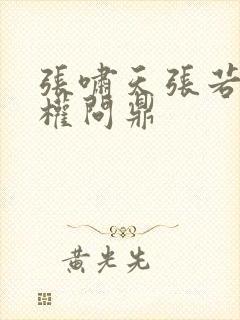 張嘯天張若
權問鼎
黃光先